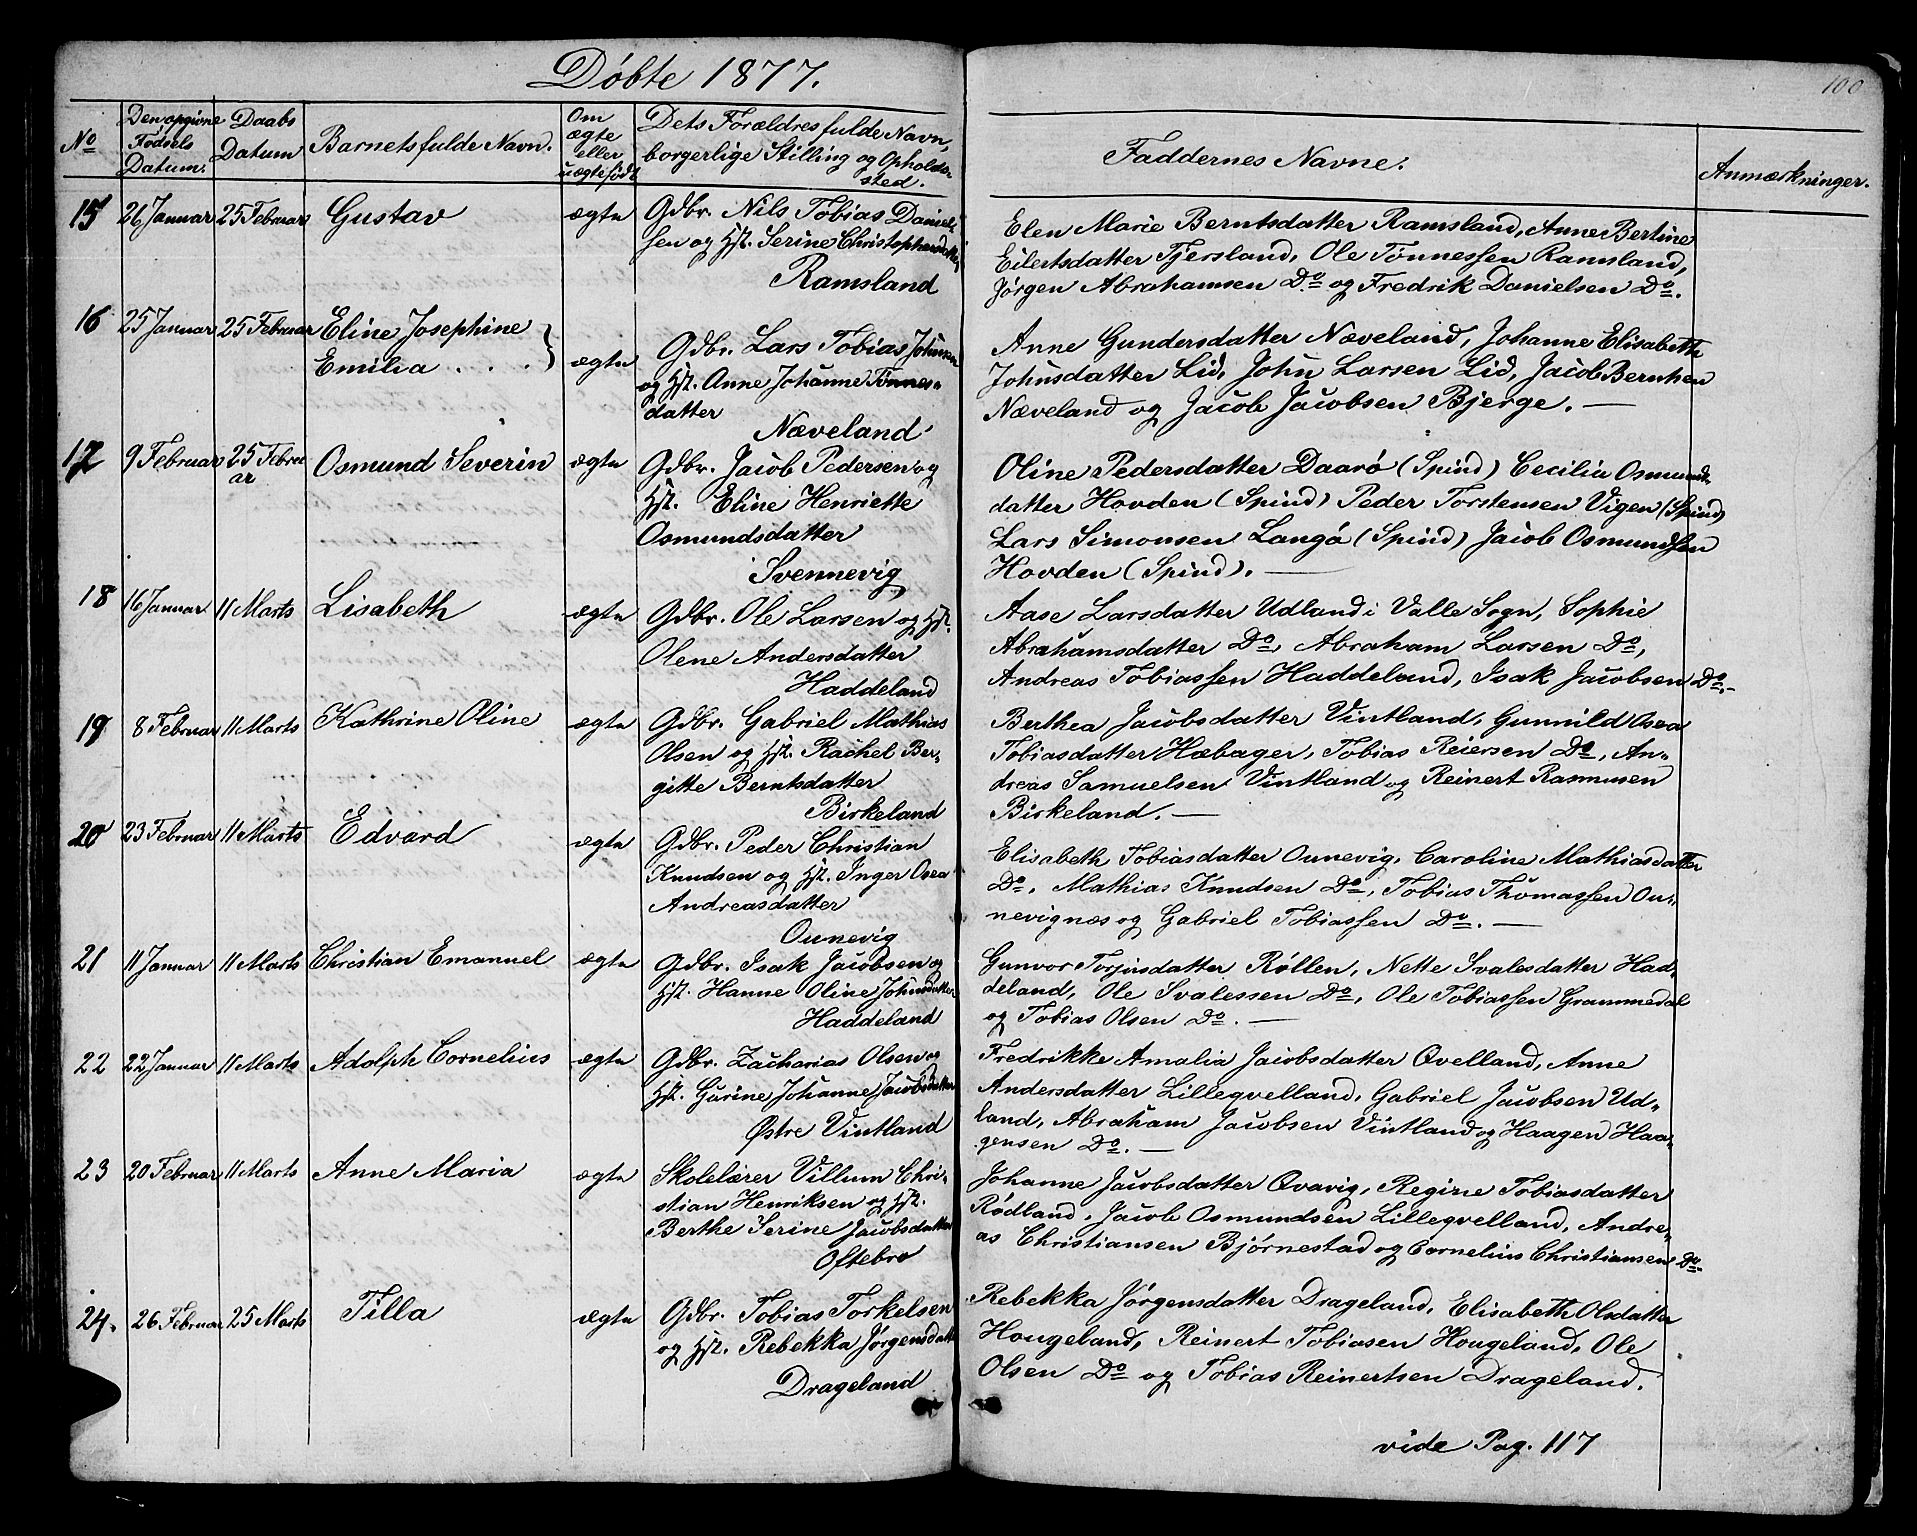 Døbte 1877.
100
No
Den opgivne Fødsels Datum.
Daabs Datum
Barnets fulde Navn.
Om ægte eller uægte født
Dets Forældres fulde Navn, borgerlige Stilling og Opholdssted.
Faddernes Navne.
Anmærkninger.
15 26 Januar 25 Februar Gustav ægte Gdbr. Nils Tobias Daniel-
sen og Hst. Serine Christophersdatter
Ramsland
Elen Marie Berntsdatter Ramsland, Anne Bertine
Eilertsdatter Tjersland, Ole Tønnessen Ramsland,
Jørgen Abrahamsen Do og Fredrik Danielsen Do.
16 25 Januar 25 Februar Eline Josephine
Emilia . . . } ægte Gdbr. Lars Tobias Johnsen
og Hst. Anne Johanne Tønnes-
datter
Næveland
Anne Gundersdatter Næveland, Johanne Elisabeth
Johnsdatter Lid, John Larsen Lid, Jacob Bernhen
Næveland og Jacob Jacobsen Bjerge. —
17 9 Februar 25 Febru
ar Osmund Severin ægte Gdbr. Jacob Pedersen og
Hst. Eline Henriette
Osmundsdatter
Svennevig
Oline Pedersdatter Daarø (Spind) Cecilia Osmunds-
datter Hovden (Spind) Peder Torstensen Vigen (Spind)
Lars Simonsen Langø (Spind) Jacob Osmundsen
Hovden (Spind). —
18 16 Januar 11 Marts Lisabeth ægte Gdbr. Ole Larsen og Hst.
Olene Andersdatter
Haddeland
Aase Larsdatter Udland i Valle Sogn, Sophie
Abrahamsdatter Do, Abraham Larsen Do,
Andreas Tobiassen Haddeland, Isak Jacobsen Do. -
19 8 Februar 11 Marts Kathrine Oline ægte Gdbr. Gabriel Mathias
Olsen og Hst. Rachel Ber-
gitte Berntsdatter
Birkeland
Berthea Jacobsdatter Vintland, Gunnild Osea
Tobiasdatter Hæbager, Tobias Reiersen Do, An-
dreas Samuelsen Vintland og Reinert Rasmusen
Birkeland. —
20 23 Februar 11 Marts Edvard ægte Gdbr. Peder Christian
Knudsen og Hst. Inger Osea
Andreasdatter
Ounevig
Elisabeth Tobiasdatter Ounevig, Caroline Mathiasdatter
Do, Mathias Knudsen Do, Tobias Thomassen Ou-
nevignæs og Gabriel Tobiassen Do. —
21 11 Januar 11 Marts Christian Emanuel ægte Gdbr. Isak Jacobsen og
Hst. Hanne Oline Johnsdatter
Haddeland
Gunvor Torjusdatter Røllen, Nette Svalesdatter Had-
deland, Ole Svalessen Do, Ole Tobiassen Grammedal
og Tobias Olsen Do. —
22 22 Januar 11 Marts Adolph Cornelius ægte Gdbr. Zacharias Olsen og
Hst. Gurine Johanne Jacobsdatter
Østre Vintland
Fredrikke Amalia Jacobsdatter Qvelland, Anne
Andersdatter Lilleqvelland, Gabriel Jacobsen Ud-
land, Abraham Jacobsen Vintland og Haagen Haa-
gensen Do. —
23 20 Februar 11 Marts Anne Maria ægte Skolelærer Villum Chri-
stian Henriksen og Hst.
Berthe Serine Jacobsdatter
Oftebro
Johanne Jacobsdatter Qvavig, Regine Tobiasdatter
Rødland, Jacob Osmundsen Lilleqvelland, Andre-
as Christiansen Bjørnestad og Cornelius Christiansen Do.
24. 26 Februar 25 Marts Tilla ægte Gdbr. Tobias Torkelsen
og Hst. Rebekka Jørgensdatter
Drageland
Rebekka Jørgensdatter Drageland, Elisabeth Olsdatter
Hougeland, Reinert Tobiasen Hougeland, Ole
Olsen Do og Tobias Reinertsen Drageland.
vide Pag. 117